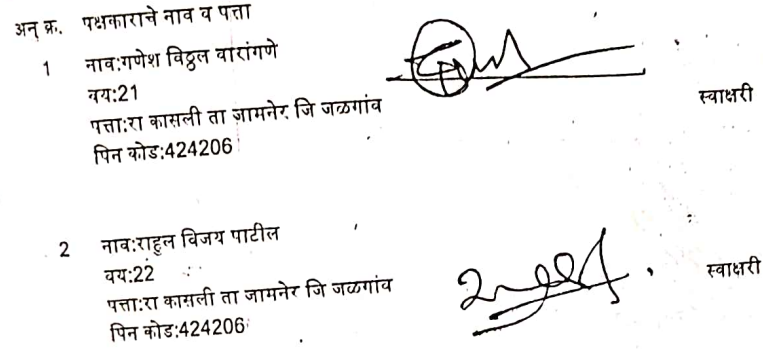 अनु क्र. पक्षकाराचे नाव व पत्ता
1 नाव:गणेश विठ्ठल वारांगणे
वय:21
स्वाक्षरी
पत्ता:रा कासली ता जामनेर जि जळगांव
पिन कोड:424206
2 नाव:राहुल विजय पाटील
वय:22
स्वाक्षरी
पत्ता:रा कासली ता जामनेर जि जळगांव
पिन कोड:424206